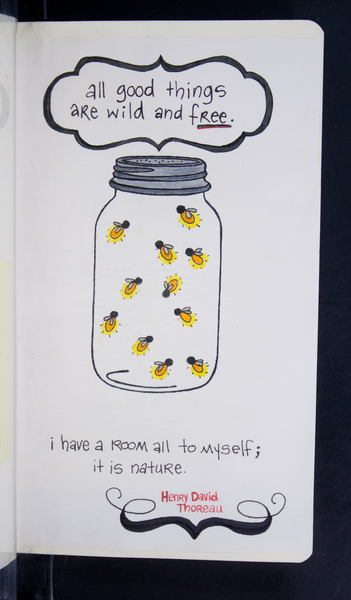 all good things
are wild and free.
i have a room all to myself;
it is nature.
Henry David
Thoreau